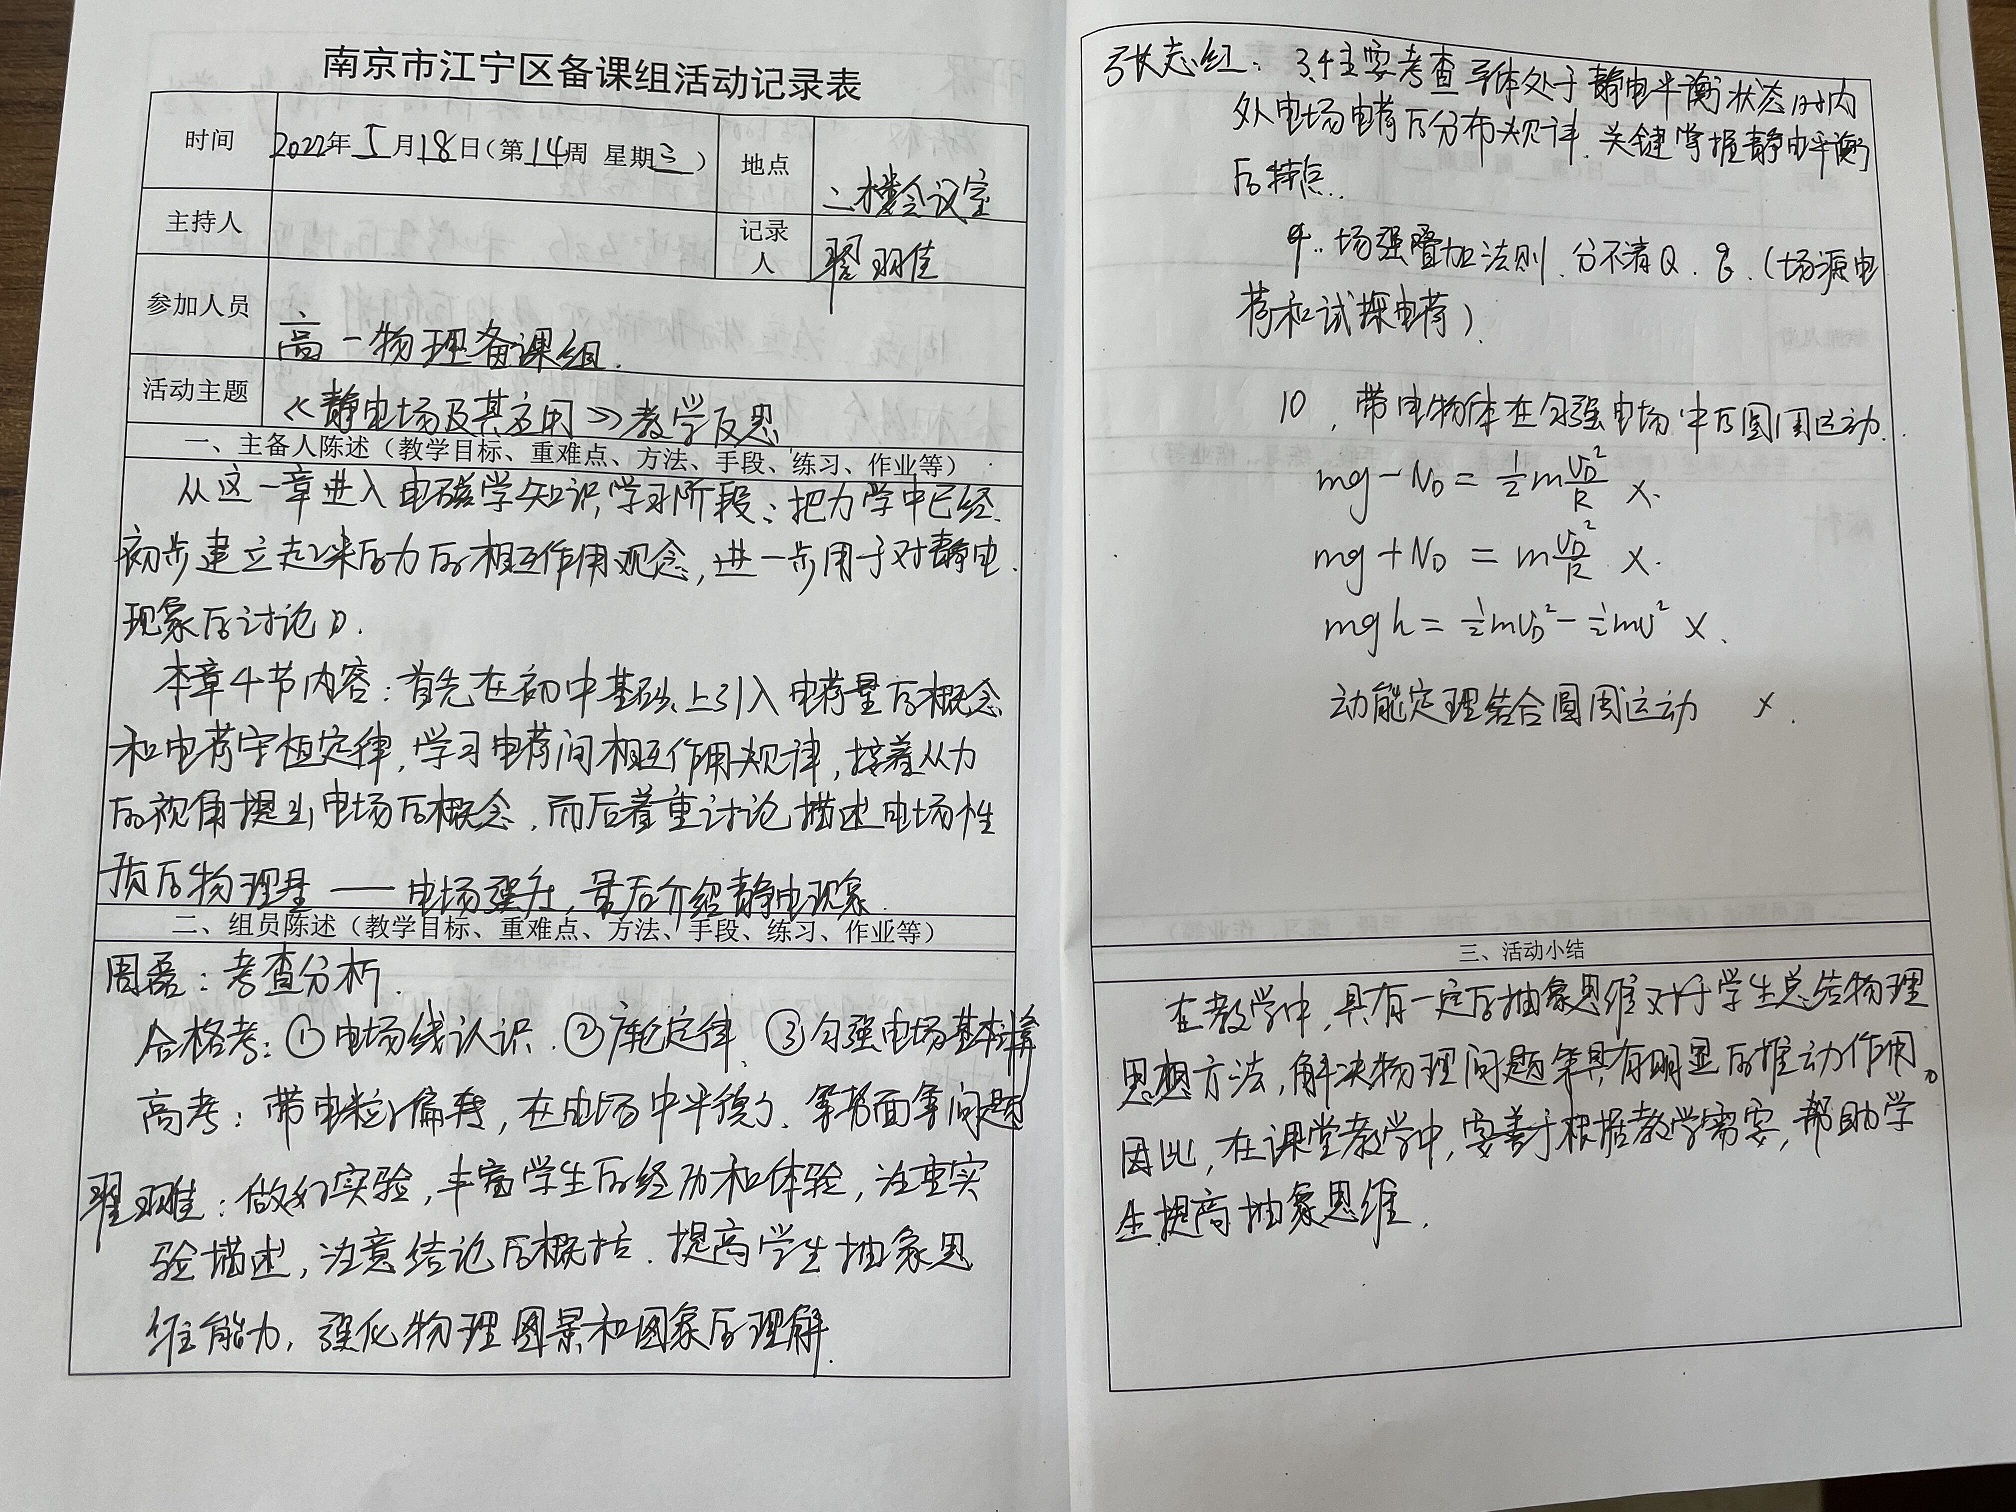 南京市江宁区备课组活动记录表
时间 2022年5月18日(第14周 星期三) 地点 二楼会议室
主持人 记录人 翟羽佳
参加人员 高一物理备课组.
活动主题 《静电场及其应用》教学反思
一、主备人陈述(教学目标、重难点、方法、手段、练习、作业等)
从这一章进入电磁学知识学习阶段:把力学中已经
初步建立起来的力的相互作用观念,进一步用于对静电
现象的讨论》.
本章4节内容:首先在初中基础上引入电荷量的概念
和电荷守恒定律,学习电荷间相互作用规律,接着从力
的视角提出电场的概念,而后着重讨论描述电场性
质的物理量——电场强度,最后介绍静电现象.
二、组员陈述(教学目标、重难点、方法、手段、练习、作业等)
周磊:考查分析.
合格考:①电场线认识.②库仑定律、③匀强电场基本计算
高考:带电粒子偏转,在电场中平衡、等势面等问题
翟羽佳:做好实验,丰富学生的经历和体验,注重实
验描述,注意结论的概括.提高学生抽象思
维能力,强化物理图景和图象的理解.
张志红:3.4主要考查导体处于静电平衡状态时内
外电场电荷的分布规律.关键掌握静电平衡
的特点.
9..场强叠加法则.分不清Q.q.(场源电
荷和试探电荷).
10,带电物体在匀强电场中的圆周运动.
mg-N_D=½m v_D²/R ×.
mg+N_D=m v_D²/R ×.
mgh=½mv_D²-½mv² ×.
动能定理结合圆周运动 ×.
三、活动小结
在教学中,具有一定的抽象思维对于学生总结物理
思想方法,解决物理问题等具有明显的推动作用。
因此,在课堂教学中,要善于根据教学需要,帮助学
生提高抽象思维.